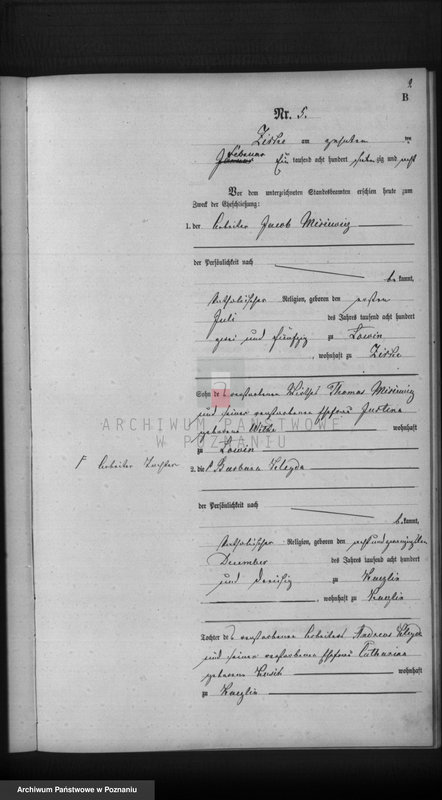 B
Nr. 5.
Zirke am zehnten
Februar
tausend acht hundert siebenzig und acht
Vor dem unterzeichneten Standesbeamten erschien heute zum
Zweck der Eheschließung:
1. der Arbeiter Jacob
der Persönlichkeit nach
be kannt,
katholischer Religion, geboren den ersten
Juli des Jahres tausend acht hundert
zwei und fünfzig zu Lowin
, wohnhaft zu Zirke
Sohn des verstorbenen Thomas
und seiner verstorbenen Ehefrau Justina
geborene wohnhaft
zu Lowin
Arbeiter Tochter
2. die Barbara
der Persönlichkeit nach
be kannt,
katholischer Religion, geboren den
December des Jahres tausend acht hundert
und dreißig zu Kaczlin
, wohnhaft zu Kaczlin
Tochter des verstorbenen Arbeiters Andreas
und seiner verstorbenen Ehefrau Catharina
geborene wohnhaft
zu Kaczlin
ARCHIWUM PAŃSTWOWE
W POZNANIU
Archiwum Państwowe w Poznaniu